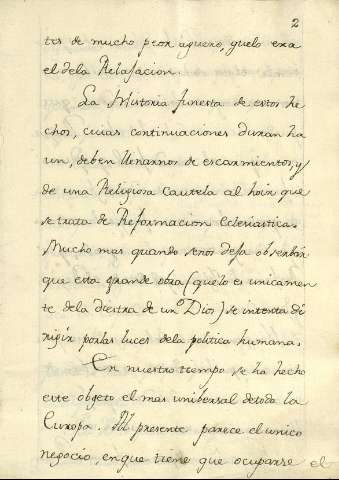 2
tes de mucho peor aguero, quelo era
el dela Relajacion.
La Historia funesta de estos he
chos, cuias continuaciones duran ha
un, deben llenarnos de escarmientos, y
de una Religiosa Cautela al hoir que
se trata de Reformacion Eclesiastica.
Mucho mas quando senos deja obserbar
que esta grande obra (quelo es unicamen
te dela diestra de un Dios) se intenta di
rigir porlas luces dela politica humana.
En nuestro tiempo se ha hecho
este obgeto el mas unibersal detoda la
Europa. Al presente parece el unico
negocio, enque tiene que ocuparse el